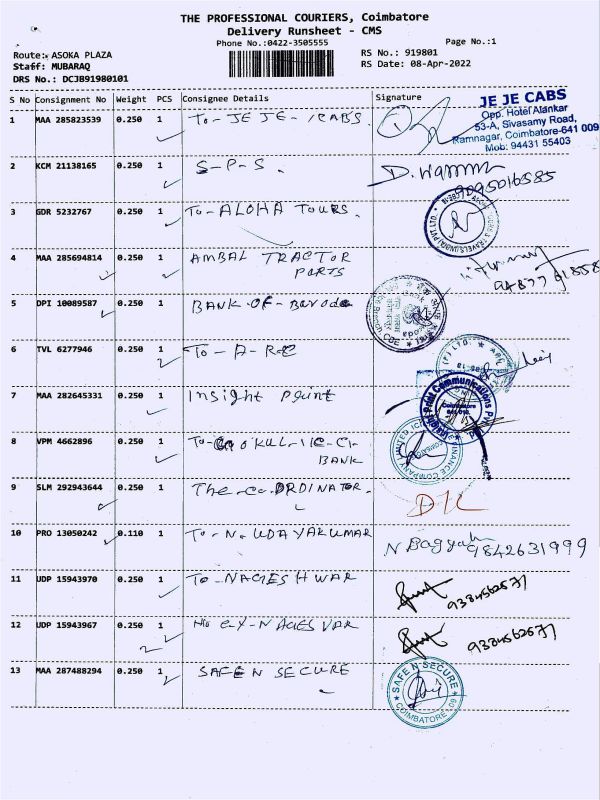 THE PROFESSIONAL COURIERS, Coimbatore
Delivery Runsheet - CMS
Phone No.:0422-3505555
Page No.:1
Route: ASOKA PLAZA
RS No.: 919801
Staff: MUBARAQ
RS Date: 08-Apr-2022
DRS No.: DCJB91980101
S No Consignment No Weight PCS Consignee Details Signature
1 MAA 285823539 0.250 1 To- JE JE- CABS
JE JE CABS
Opp. Hotel Alankar
53-A, Sivasamy Road,
Ramnagar, Coimbatore-641 009
Mob: 94431 55403
2 KCM 21138165 0.250 1 S-P-S. 9095016585
3 GDR 5232767 0.250 1 To- ALOHA TOURS.
4 MAA 285694814 0.250 1 AMBAL TRACTOR
PORTS
5 DPI 10089587 0.250 1 BANK-OF-Baroda
6 TVL 6277946 0.250 1 To-
7 MAA 282645331 0.250 1 Insight Print
Insight Print Communications Pvt Ltd
Coimbatore
8 VPM 4662896 0.250 1
BANK
9 SLM 292943644 0.250 1 The-co-ORDINATOR.
10 PRO 13050242 0.110 1 To-N-UDAYAKUMAR N Bagyah 9842631999
11 UDP 15943970 0.250 1 To-NAGESHWAR 9384562577
12 UDP 15943967 0.250 1 9384562577
13 MAA 287488294 0.250 1 SAFE N SECURE
SAFE N SECURE
COIMBATORE